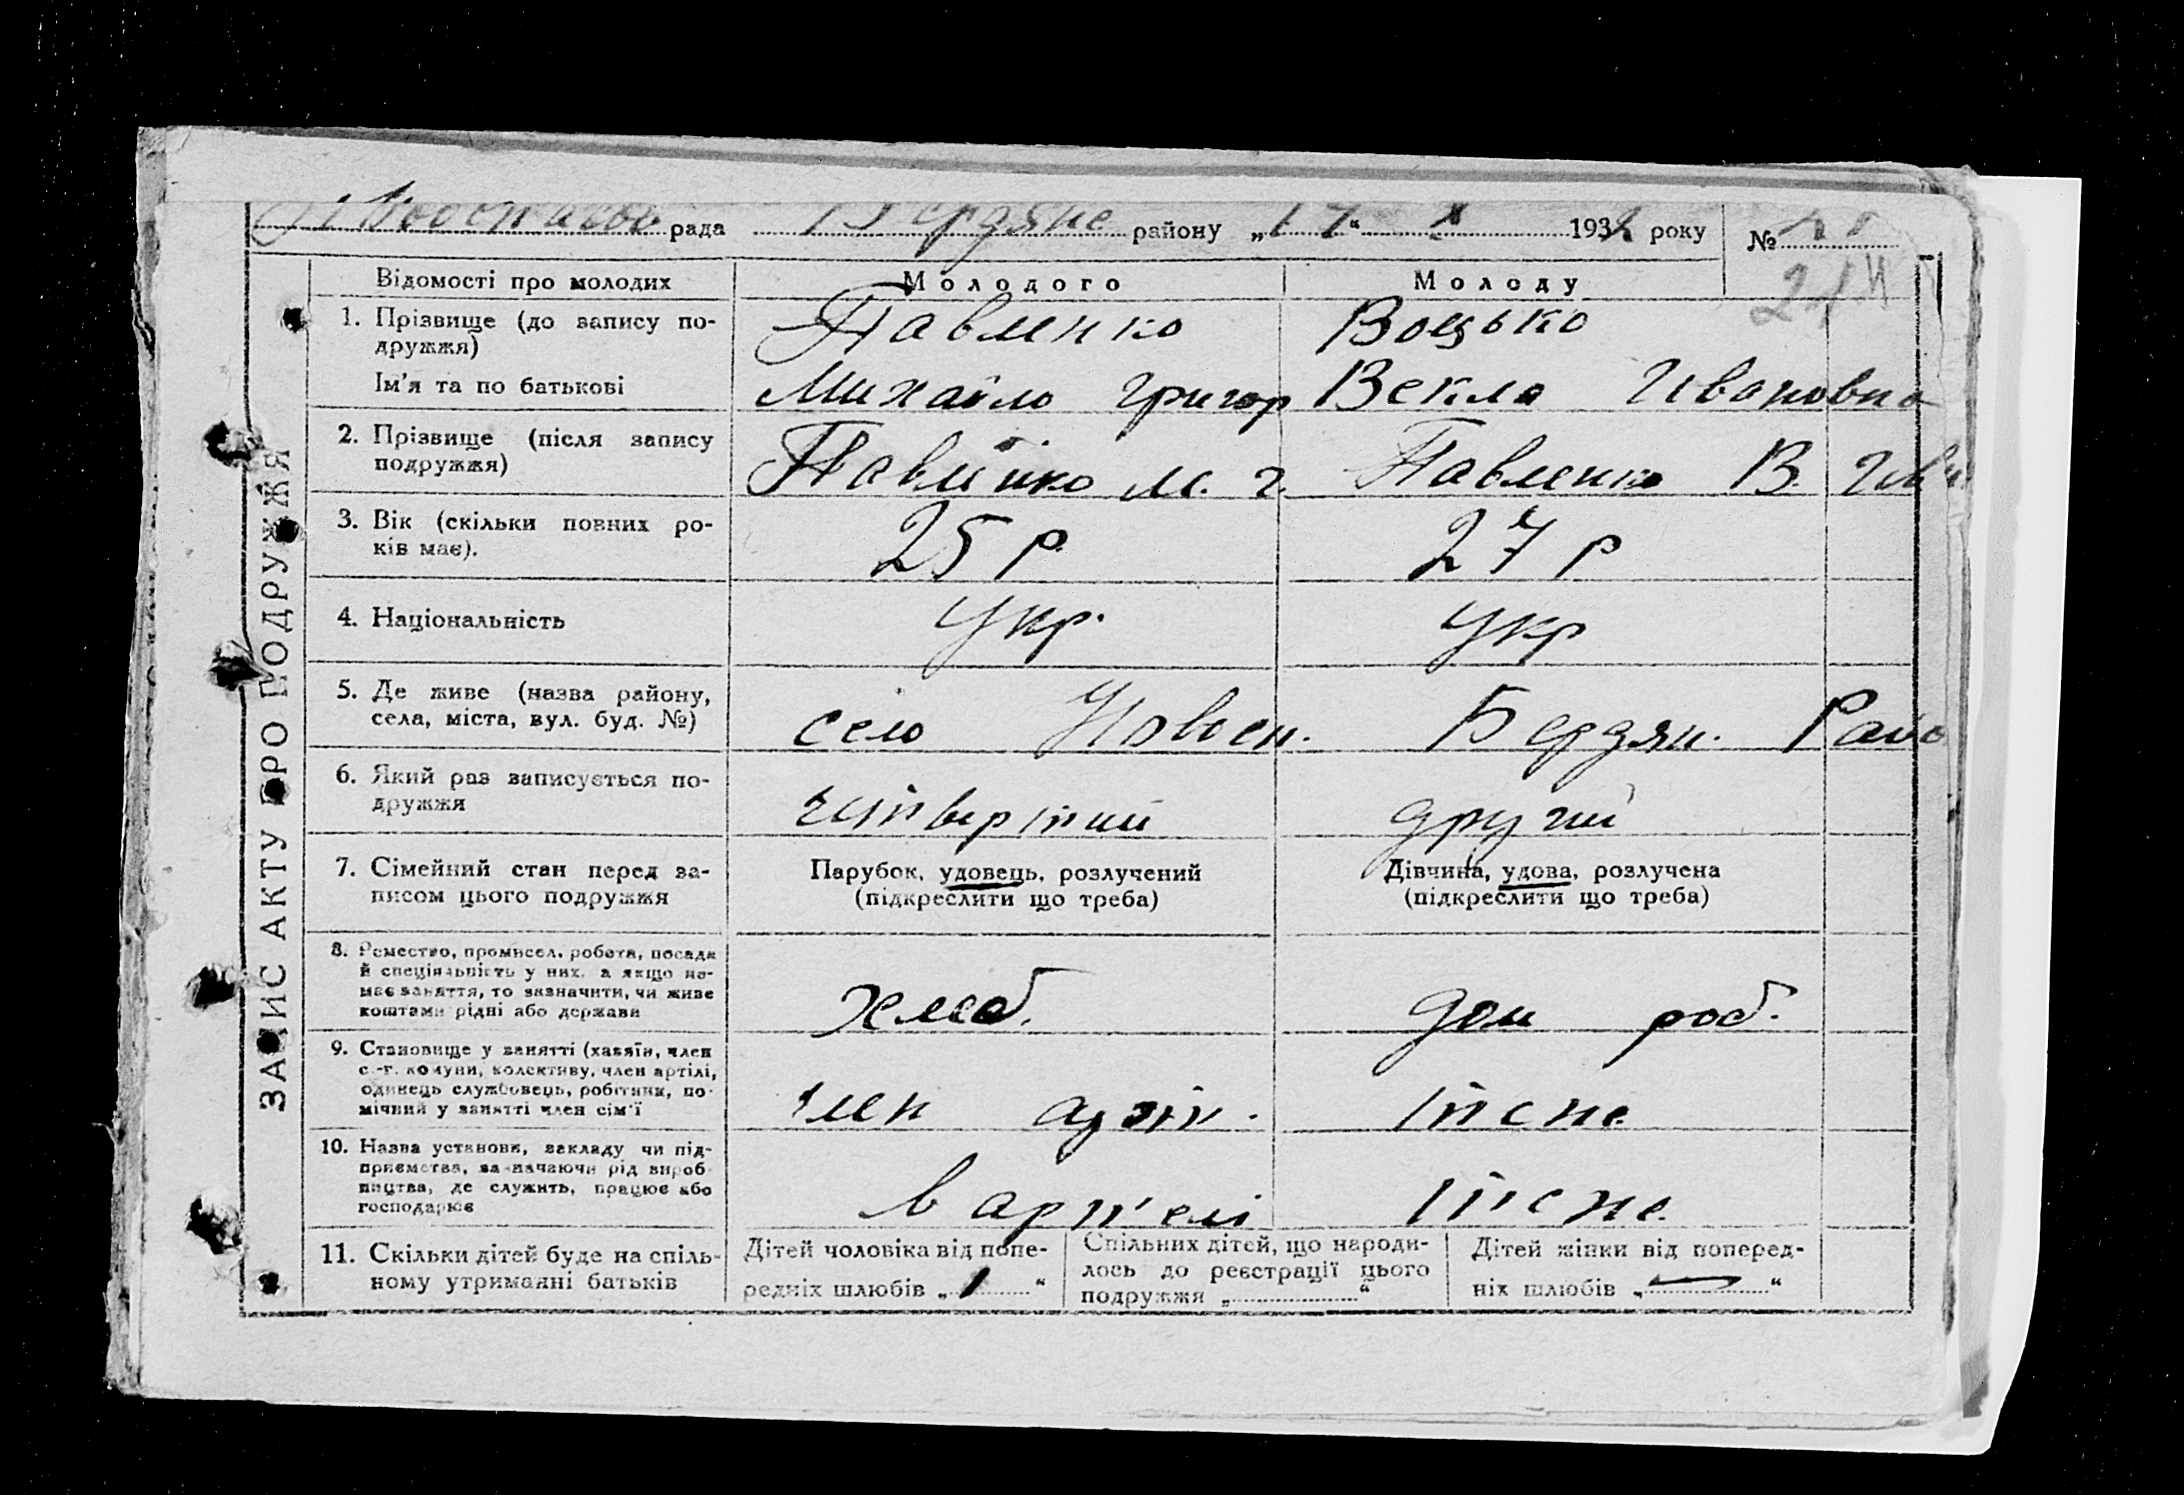 Новоспасов рада Бердянс району „17“ X 1932 року №
21
ЗАПИС АКТУ ПРО ПОДРУЖЖЯ
Відомості про молодих Молодого Молоду
1. Прізвище (до запису по-
дружжя) Павленко Воцько
Ім'я та по батькові Михайло Григор Векла Ивановна
2. Прізвище (після запису
подружжя) Павленко М. Г. Павленко В.
3. Вік (скільки повних ро-
ків має). 25 р. 27 р
4. Національність Укр. Укр
5. Де живе (назва району,
села, міста, вул. буд. №) село Новосп. Бердян. Райо
6. Який раз записується по-
дружжя четвертий другий
7. Сімейний стан перед за-
писом цього подружжя
Парубок, удовець, розлучений
(підкреслити що треба)
Дівчина, удова, розлучена
(підкреслити що треба)
8. Ремество, промисел, робота, посада
й спеціяльність у них, а якщо не-
має заняття, то зазначити, чи живе
коштами рідні або держави хліб. дом роб.
9. Становище у занятті (хазяїн, член
с.-г. комуни, колективу, член артілі,
одинець службовець, робітник, по-
мічний у занятті член сім'ї член арт. тісне
10. Назва установи, закладу чи під-
приємства, зазначаючи рід вироб-
ництва, де служить, працює або
господарює в артелі тісне
11. Скільки дітей буде на спіль-
ному утриманні батьків
Дітей чоловіка від попе-
редніх шлюбів „1“
Спільних дітей, що народи-
лось до реєстрації цього
подружжя „ “
Дітей жінки від поперед-
ніх шлюбів „—“